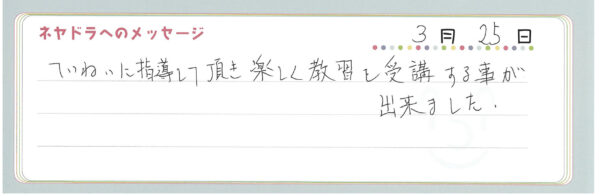 ネヤドラへのメッセージ 3月 25日
ていねいに指導して頂き楽しく教習を受講する事が
出来ました.